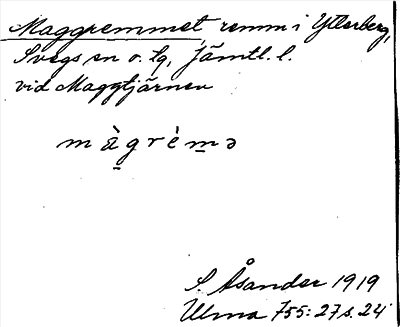 Maggremmet, remm i Ytterberg,
Svegs sn o. tg, Jämtl. l.
vid Maggtjärnen
m à̱ g r è m̲ ə
S. Åsander 1919
Ulma 755:27 s. 24